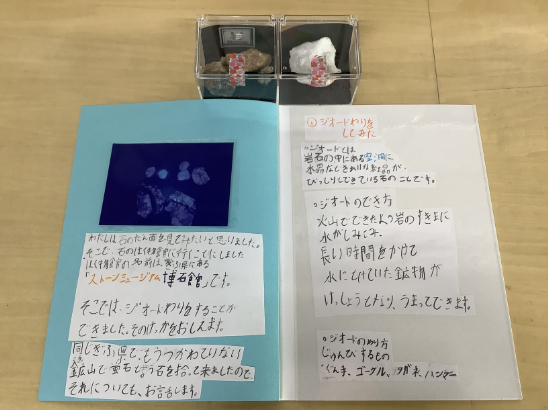 わたしは石のだん面を見てみたいと思いました。
そこで、石のはく物館に行くことにしました
はく物館の名前は、ぎふ県にある
「ストーンミュージアム博石館」です。
そこでは、ジオードわりをすることが
できました。そのけっかをお伝えします。
同じぎふ県で、もうつかわれていない
鉱山で蛍石という石を拾って来ましたので、
それについても、お話します。
①ジオードわりを
してみた
○ジオードとは
岩石の中にある空洞に
水晶などきれいな結晶が、
びっしりできている石のことです。
○ジオートのでき方
火山でできたよう岩のすき間に
水がしみこみ、
長い時間をかけて
水にとけていた鉱物が
けっしょうとなり、うまってできます。
○ジオードのわり方
じゅんびするもの
ぐんて、ゴーグル、タガネ、ハンマー